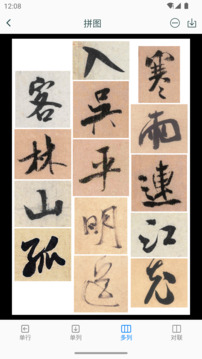 12:08
拼图
寒雨連江充
入吳平明送
客林山孤
单行
单列
多列
对联